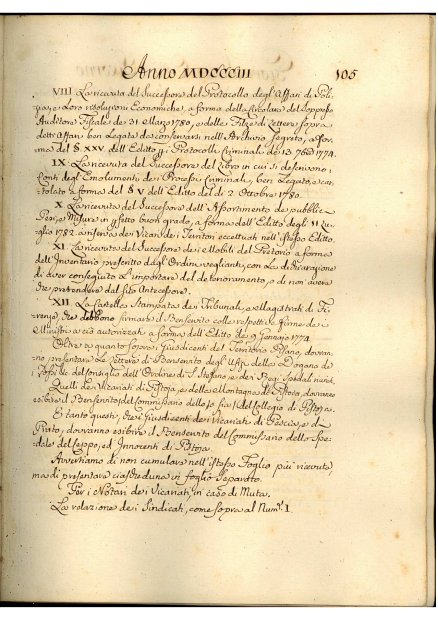 Anno MDCCCIII 105
VIII. La ricevuta del Successore del Protocollo degl'Affari di Poli-
zia, e Loro resoluzioni Economiche, a forma della Circolare del soppresso
Auditore Fiscale de' 31 Marzo 1780, e delle Filze di Lettere sopra
detti Affari ben Legate da conservarsi nell'Archivio segreto, a for-
ma del § XXV dell'Editto pr. Protocolli Criminali de' 13 1774.
IX. La ricevuta del Successore del Libro in cui si descrivono i
Conti degl'Emolumenti de' Processi Criminali, ben Legato, e car-
tolato a forma del § V dell'Editto del dì 2 Ottobre 1780.
X. La ricevuta del Successore dell'Assortimento de' pubblici
Pesi, e Misure in essetto buon grado, a forma dell'Editto degl'11 Lu-
glio 1782 in fuori de' Vicari de' Territori eccettuati nell'istesso Editto.
XI. La ricevuta del Successore de' Mobili del Pretorio a forma
dell'Inventario prescritto dagl'Ordini veglianti, con La dichiarazione
di aver conseguito L'importare del deterioramento, o di non avere
che pretendere dal suo Antecessore.
XII. La Cartella Stampata de' Tribunali, e Magistrati di Fi-
renze, che debbono firmare il Benservito colle respettive firme de'
Ministri a ciò autorizzati a forma dell'Editto de' 9 Gennajo 1774
Oltre a quanto sopra i Giusdicenti del Territorio Pisano, dovran-
no presentare Le Lettere di Benservito degl'Ufizj della Dogana de'
Fossi, del Consiglio dell'Ordine di S. Stefano, e dei Regj Spedali riuniti.
Quelli de' Vicariati di Pistoja, e delle Montagne di Pistoja, dovranno
esibire il Benservito del Commissario dello e del Collegio di Pistoja.
E tanto questi, che i Giusdicenti de' Vicariati di Pescia, e di
Prato, dovranno esibire il Benservito del Commissario dello Spe-
dale del Ceppo, ed Innocenti di Pistoja.
Avvertiamo di non cumulare nell'istesso Foglio più ricevute,
ma di presentare ciascheduna in foglio separato.
Per i Notari de' Vicariati, in caso di Muta.
La relazione de' i Sindicati, come sopra al Num.° I.